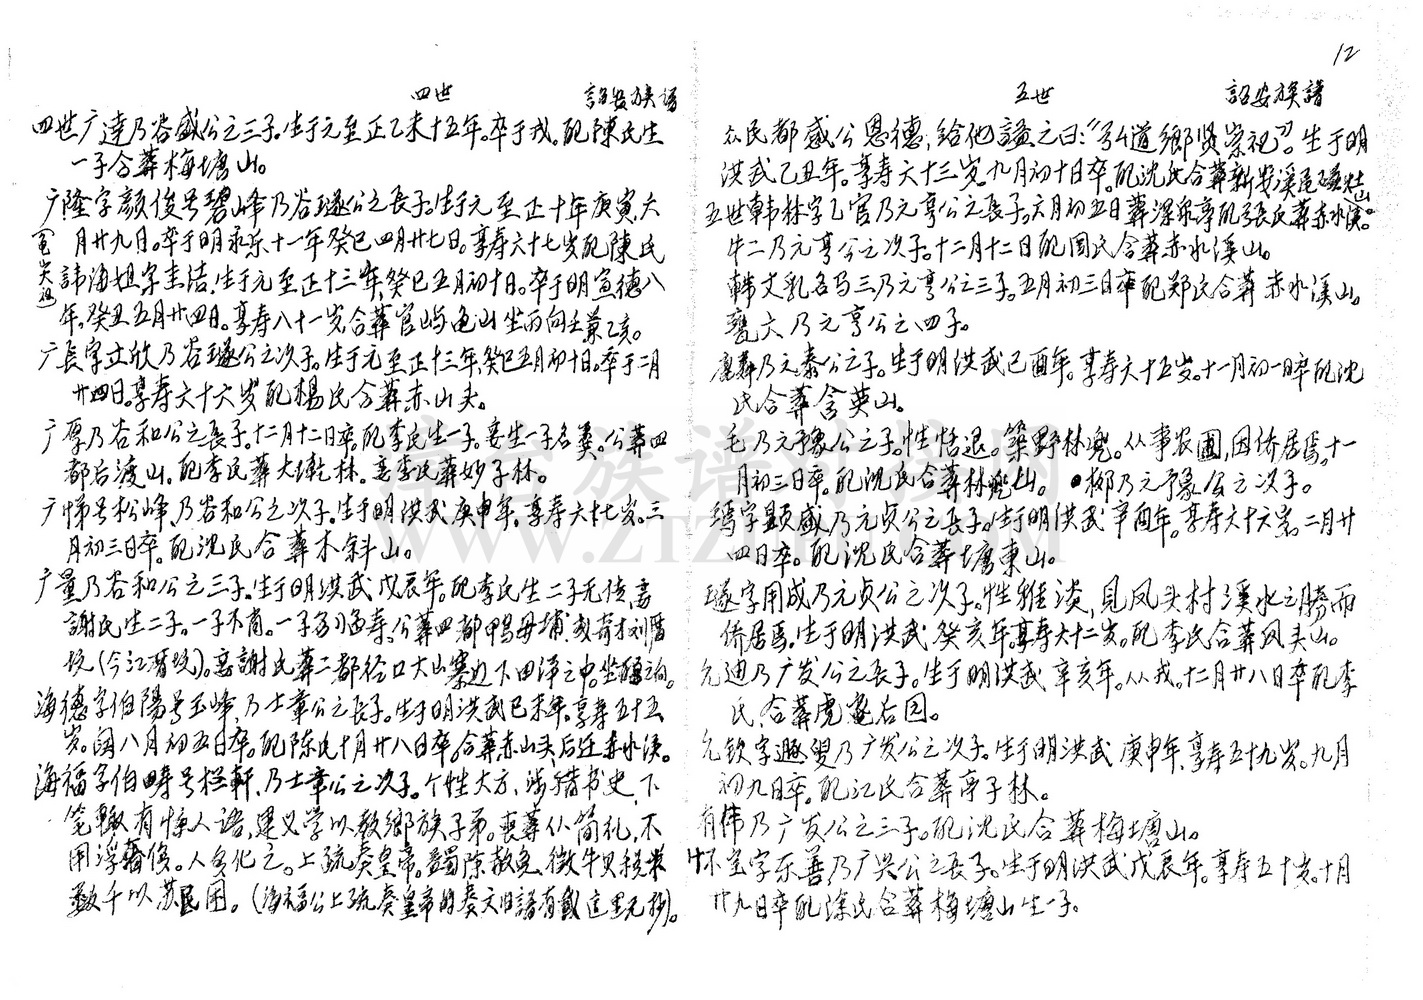 四世 詔安族谱
四世广達乃谷盛公之三子。生于元至正乙未十五年。卒于戎。配陳氏生
一子合葬梅塘山。
广隆字顏俊号碧山峰乃谷璲公之長子。生于元至正十年庚寅，六
月廿九日。卒于明永乐十一年癸巳四月廿七日。享寿六十七岁配陳氏
諱海姐字圭洁，生于元至正十三年，癸巳五月初十日。卒于明宣德八
年。癸丑五月廿四日。享寿八十一岁，合葬官屿龟山坐丙向壬兼乙亥。
广長字立欣乃谷璲公之次子。生于元至正十三年，癸巳五月初十日。卒于二月
廿四日。享寿六十六岁配楊氏合葬赤山头。
广厚乃谷和公之長子。十二月十二日卒。配李氏生一子。妾生一子名美。公葬四
都后渡山。配李氏葬大墘林。妾李氏葬妙子林。
广悌号松峰，乃谷和公之次子。生于明洪武庚申年。享寿六十七岁。三
月初三日卒。配沈氏合葬木斜山。
广量乃谷和公之三子。生于明洪武戊辰年。配李氏生二子无传，妾
謝氏生二子。一子不育。一子孟寿，公葬四都鴨母埔，或寄才刘厝
坟（今江厝坟）。妾謝氏葬二都径口大山寨边下田洋之中。
海德字伯陽号玉峰，乃士章公之長子。生于明洪武己未年。享寿五十五
岁。闰八月初五日卒。配陈氏十月廿八日卒。合葬赤山头后迁赤水溪。
海福字伯畴号栏軒，乃士章公之次子。个性大方，涉猎书史，下
笔輙有惊人语，建义学以教鄉族子弟。喪葬从简礼，不
用浮奢侈。人多化之。上疏奏皇帝。蠲除赦免，微牛贝税米
数千以苏民困。（海福公上疏奏皇帝的奏文旧谱有載这里无抄）。
12
五世 詔安族譜
众民都感公恩德，给他謚之曰：“弘道鄉贤崇祀”。生于明
洪武乙丑年。享寿六十三岁。九月初十日卒。配沈氏合葬新安溪尾
五世韩林字乙官乃元亨公之長子。六月初五日葬深泉亭配張氏葬赤水溪。
牛二乃元亨公之次子。十二月十二日配周氏合葬赤水溪山。
韩文乳名马三乃元亨公之三子。五月初三日卒配郑氏合葬赤水溪山。
甕六乃元亨公之四子。
乃元泰公之子。生于明洪武己酉年。享寿六十五岁。十一月初一日卒配沈
氏合葬含英山。
毛乃元豫公之子。性恬退。築野林兜。从事农圃，因侨居焉。十一
月初三日卒。配沈氏合葬林兜山。 柳乃元豫公之次子。
瑪字顕盛乃元贞公之長子。生于明洪武辛酉年。享寿六十六岁。二月廿
四日卒。配沈氏合葬塘東山。
璲字用成乃元贞公之次子。性雅淡，見凤头村溪水之勝而
侨居焉。生于明洪武癸亥年。享寿六十二岁。配李氏合葬凤头山。
允迪乃广发公之長子。生于明洪武辛亥年。从戎。十二月廿八日卒配李
氏，合葬虎邊右田。
允钦字遜叟乃广发公之次子。生于明洪武庚申年，享寿五十九岁。九月
初九日卒。配江氏合葬亭子林。
有伟乃广发公之三子。配沈氏合葬梅塘山。
怀宝字乐善乃广兴公之長子。生于明洪武戊辰年。享寿五十岁。十月
廿九日卒配涂氏合葬梅塘山生一子。